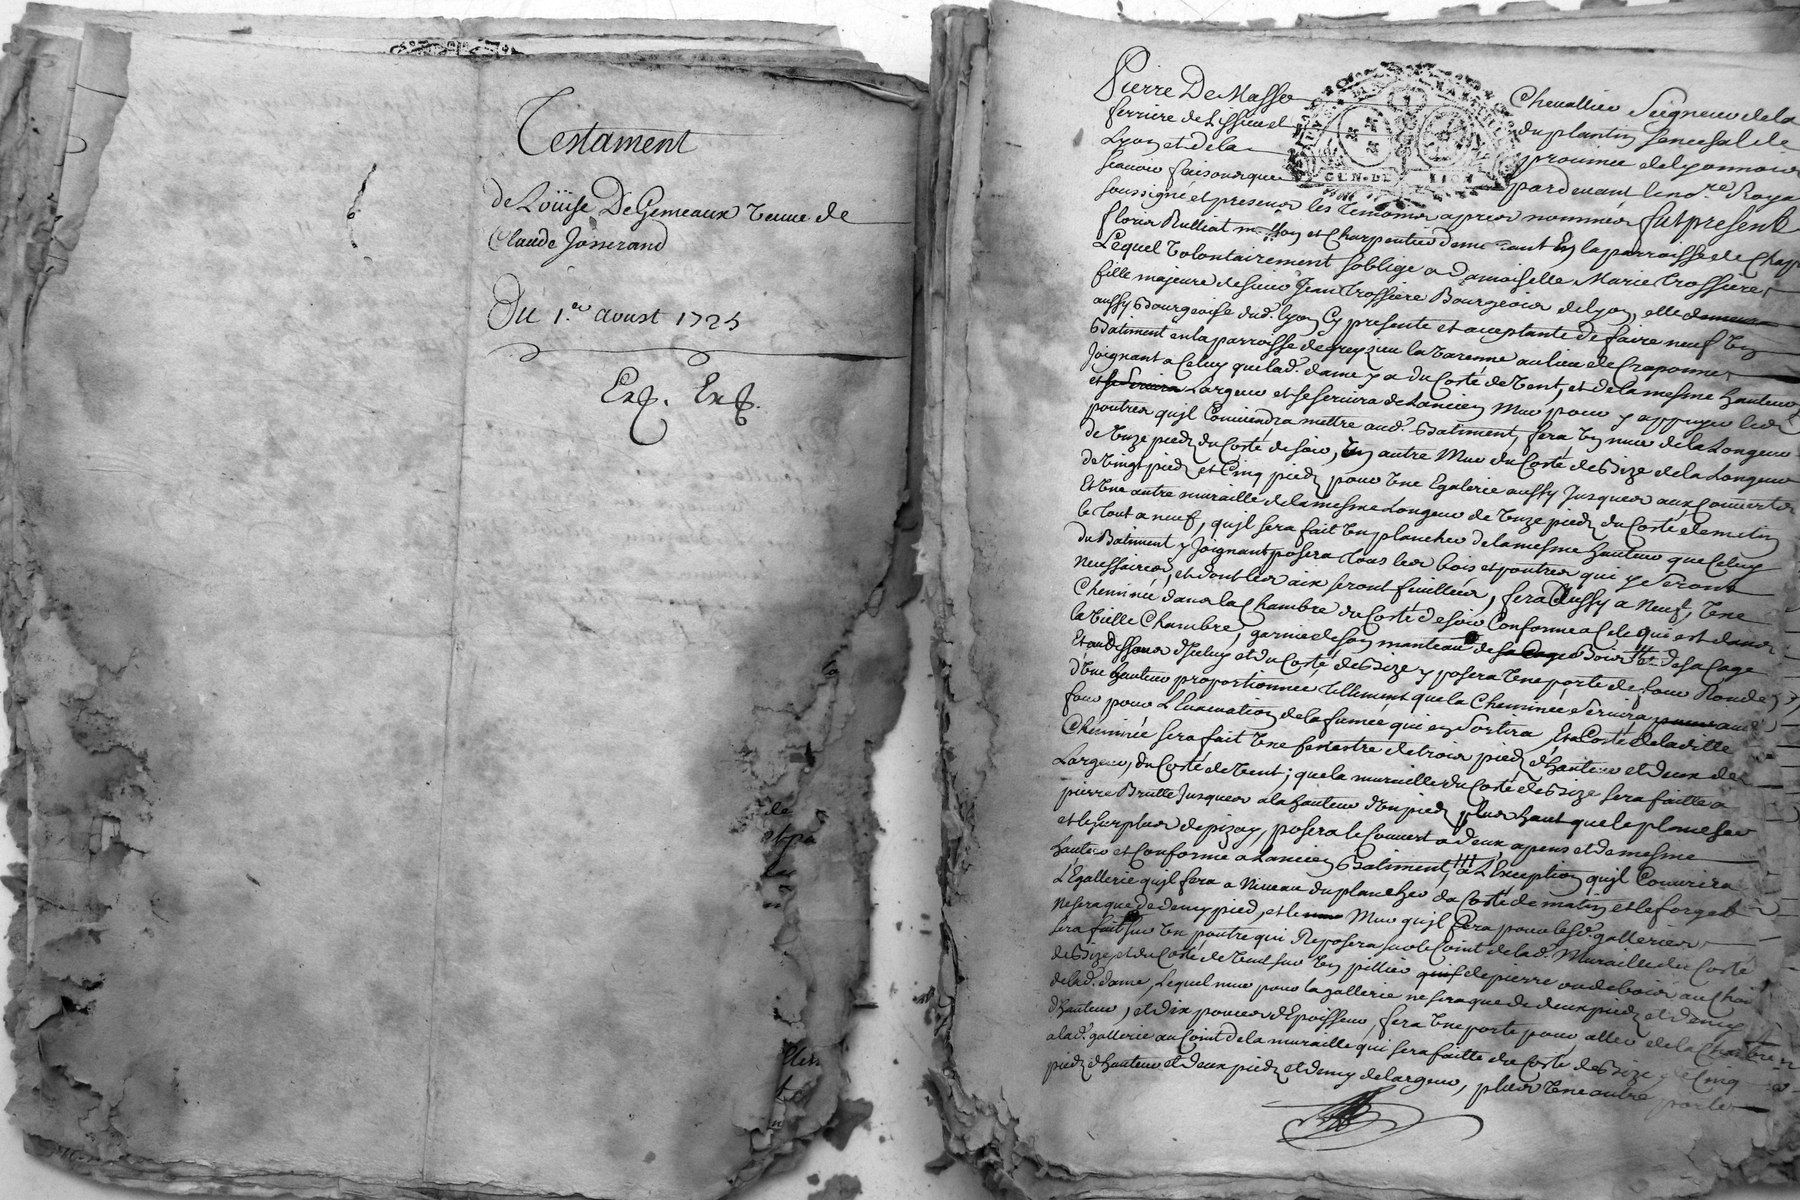 Testament
de Loüise De Gemeaux veuve de
Claude Josserand
Du 1.er aoust 1725
Exp. Exp.
de
Pierre De Masso Chevallier Seigneur de la
ferriere de Lissieu et du plantin Seneschal de
Lyon et de la province de lyonnois
scavoir faisons que pardevant le no.re Royal
soussigné et presence les temoins apres nommés fut present
Lequel volontairement s'oblige a damoiselle Marie Trossiere
fille majeure de sieur Jean Trossiere Bourgeois de Lyon, elle
aussy Bourgeoise dud. lyon Cy presente et aceptante de faire neuf un
Batiment en la parroisse de greyzieu la varenne au lieu de Craponne
Joignant a Celuy que lad. dame y a du Costé de vent, et de la mesme hauteur
Largeur et se servira de Lancien Mur pour y appuyer les
poutres qu'jl Conviendra mettre aud. Batiment, fera un mur de la Longueur
de unze pieds du Costé de soir, un autre Mur du Costé de Bize de la Longueur
de vingt pieds et Cinq pieds pour une Egalerie aussy Jusques aux Couverts
Et une autre muraille de la mesme Longeur de unze pieds du Costé de matin
le tout a neuf, qu'jl sera fait un plancher de la mesme hauteur que Celuy
du Batiment y Joignant posera tous les bois et poutres qui y seront
Necessaires, et dont les aix seront feuillées, fera aussy a Neuf, une
Cheminée dans la Chambre du Costé de soir Conforme a Cele qui est dans
la vielle Chambre, garnie de son manteau de Bois de sa Cage
Et au dessous d'Jceluy et du Costé de Bize y posera une porte de four Ronde
d'une hauteur proportionnée tellement que la Cheminée servira aud.
four pour L'Evacuation de la fumée qui en sortira, Et a Costé de lad.
Cheminée sera fait une fenestre de trois pieds d'hauteur et deux de
Largeur, du Costé de vent; que la muraille du Costé de Bize sera faitte a
pierre Brutte Jusques a la hauteur d'un pied plus haut que le plancher
et le surplus de pizay, posera le Couvert a deux apens et de mesme
hauteur et Conforme a Lancien Batiment, a L'Exception qu'jl Couvrira
L'Egallerie qu'jl fera a Niveau du plancher du Costé de matin et le forget
Ne sera que de demy pied, et le Mur qu'jl fera pour lesd. galleries
sera fait sur un poutre qui Reposera sur le Coint de lad. Muraille du Costé
de Bize et du Costé de vent sur un pillier de pierre ou de bois au Choix
de lad. dame, Lequel mur pour la gallerie ne sera que de deux pieds et demy
d'hauteur, et dix pouces d'Epoisseur, fera une porte pour aller de la Chambre
a lad. gallerie au Coint de la muraille qui sera faitte du Costé de Bize, de Cinq
pieds d'hauteur et deux pieds et demy de largeur, plus une autre porte